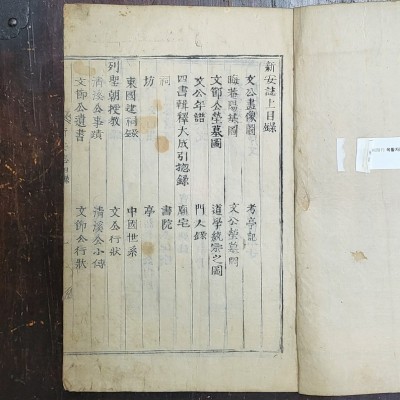 新安誌上目錄
文公畫像圖 考亭記
晦菴陽基圖 文公塋墓圖
文節公塋墓圖 道學統宗之圖
文公年譜 門人錄
四書輯釋大成引摠錄 廟宅
祠 書院
坊 亭
東國建祠錄 中國世系
列聖朝授教 文公行狀
清溪公事蹟 清溪公小傳
文節公遺書 文節公行狀